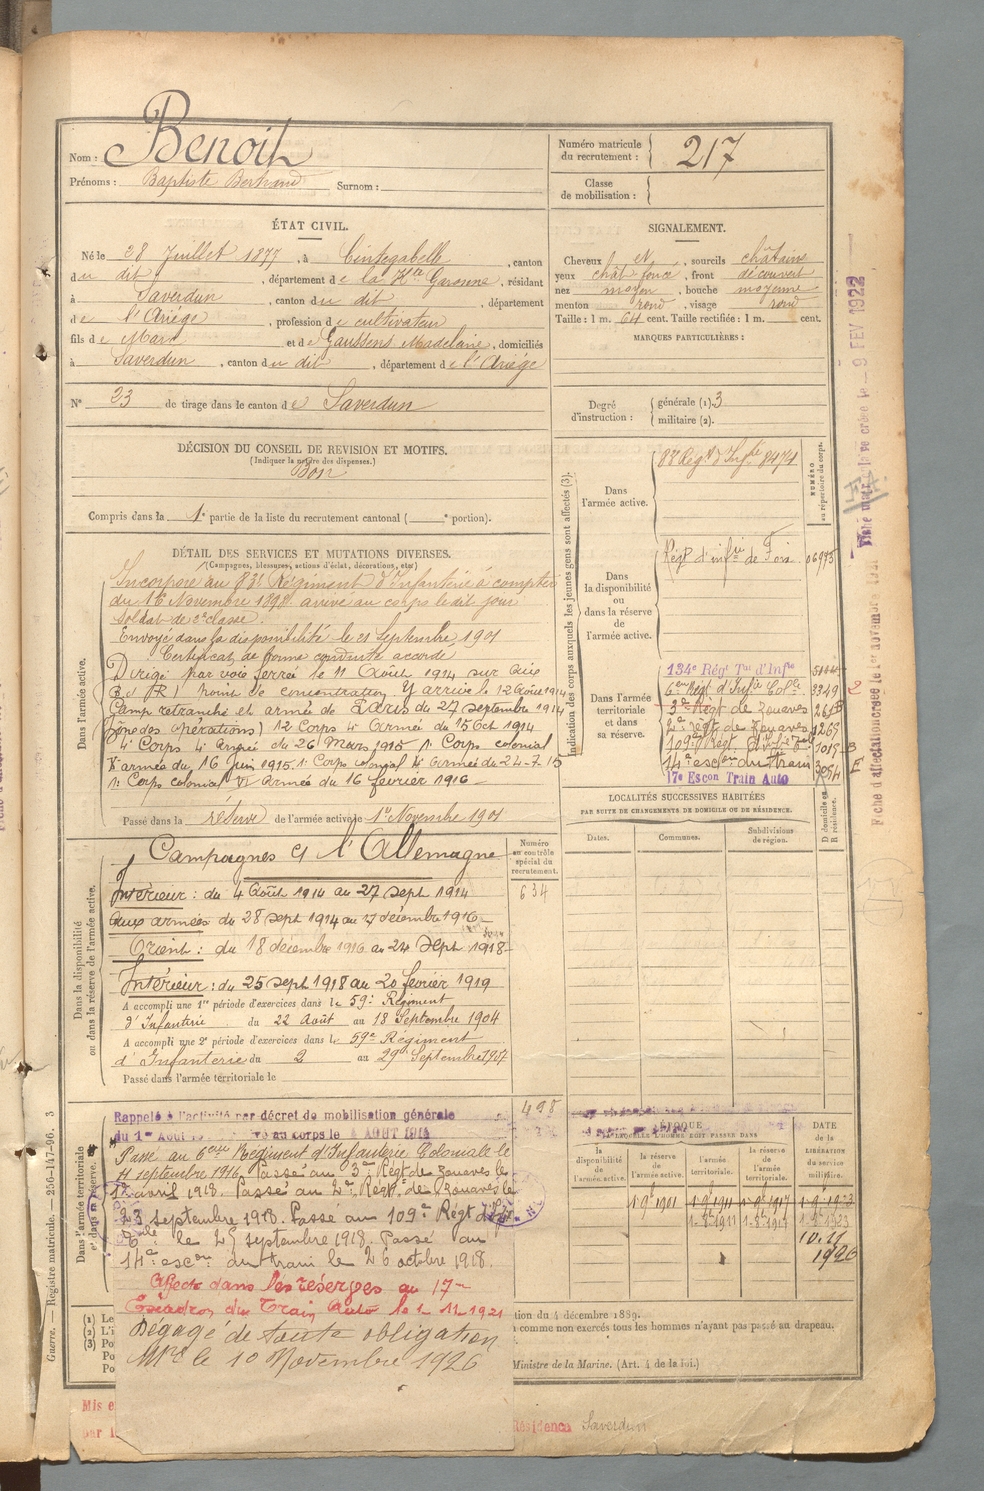 Nom : Benoit
Prénoms : Baptiste Bertrand Surnom :
Numéro matricule du recrutement : 217
Classe de mobilisation :
ÉTAT CIVIL.
Né le 28 Juillet 1877, à Cintegabelle, canton
du dit, département de la Hte Garonne, résidant
à Saverdun, canton du dit, département
de l'Ariége, profession de cultivateur
fils de Marc et de Gaussens Madelaine, domiciliés
à Saverdun, canton du dit, département de l'Ariége
N° 23 de tirage dans le canton de Saverdun
SIGNALEMENT.
Cheveux et, sourcils châtains
yeux chât foncé, front découvert
nez moyen, bouche moyenne
menton rond, visage rond
Taille : 1 m. 64 cent. Taille rectifiée : 1 m. cent.
MARQUES PARTICULIÈRES :
Degré d'instruction : générale (1). 3
militaire (2).
DÉCISION DU CONSEIL DE REVISION ET MOTIFS.
(Indiquer la nature des dispenses.)
Bon
Compris dans la 1e partie de la liste du recrutement cantonal ( e portion).
DÉTAIL DES SERVICES ET MUTATIONS DIVERSES.
(Campagnes, blessures, actions d'éclat, décorations, etc.)
Dans l'armée active.
Incorporé au 83e Régiment d'Infanterie à compter
du 16 Novembre 1898 arrivé au corps le dit jour
Soldat de 2e classe.
Envoyé dans la disponibilité le 21 Septembre 1901
Certificat de bonne conduite accordé
Dirigé par voie ferrée le 11 Août 1914 sur Aix
(B d R) point de concentration Y arrive le 12 Août 1914
Camp retranché et armée de Paris du 27 septembre 1914
(Zône des opérations) 12 Corps 4e Armée du 15 Oct 1914
4e Corps 4e Armée du 26 Mars 1915 1e Corps colonial
armée du 16 Juin 1915. 1e Corps colonial 4e Armée du 24-7 15
1e Corps colonial VI Armée du 16 fevrier 1916
Passé dans la réserve de l'armée active le 1er Novembre 1901
Indication des corps auxquels les jeunes gens sont affectés (3).
NUMÉRO au répertoire du corps.
Dans l'armée active.
83 Regt d'Infie 8474
Dans la disponibilité ou dans la réserve de l'armée active.
Régt d'infie de Foix 06975
Dans l'armée territoriale et dans sa réserve.
134e Régt Tal d'Infie
6eme Regt d'Infie Colle 3349
3e Regt de zouaves
2e régt de Zouaves 1265
14e escon du train
17e Escon Train Auto
LOCALITÉS SUCCESSIVES HABITÉES
PAR SUITE DE CHANGEMENTS DE DOMICILE OU DE RÉSIDENCE.
Dates. Communes. Subdivisions de région. D domicile ou R résidence.
Dans la disponibilité ou dans la réserve de l'armée active.
Numéro au contrôle spécial du recrutement.
634
Campagnes c/ l'Allemagne
Intérieur : du 4 Août 1914 au 27 sept 1914
aux armées du 28 sept 1914 au 17 décembre 1916
Orient : du 18 décembre 1916 au 24 sept 1918
Intérieur : du 25 sept 1918 au 20 février 1919
A accompli une 1re période d'exercices dans le 59e Régiment
d'Infanterie du 22 Août au 18 Septembre 1904
A accompli une 2e période d'exercices dans le 59e Régiment
d'Infanterie du 2 au 29 Septembre 1907
Passé dans l'armée territoriale le
Dans l'armée territoriale et dans sa réserve.
498
Rappelé à l'activité par décret de mobilisation générale
du 1er Août au corps le 4 AOUT 1914
Passé au 6eme Regiment d'Infanterie Coloniale le
11 septembre 1916. Passé au 3e Régt de zouaves le
avril 1918. Passé au 2e Régt de zouaves le
23 septembre 1918. Passé au 109e Régt d'Infie
Tale le 25 septembre 1918. Passé au
14e escon du train le 26 octobre 1918.
Affecté dans les réserves au 17e
Escadron du Train Auto le 1-11 1921
Dégagé de toute obligation
Mre le 10 Novembre 1926
ÉPOQUE
À LAQUELLE L'HOMME DOIT PASSER DANS
la disponibilité de l'armée active. la réserve de l'armée active. l'armée territoriale. la réserve de l'armée territoriale.
DATE de la LIBÉRATION du service militaire.
1-9bre 1901 1-9 1911 1-9 1917 1-9-1923
10.11
1926
tion du 4 décembre 1889.
comme non exercés tous les hommes n'ayant pas passé au drapeau.
Ministre de la Marine. (Art. 4 de la loi.)
Guerre. — Registre matricule. — 256-147-96. 3
Mis e
par l
Résidence Saverdun
9 FEV 1922
Fiche d'affectation créée le 1er novembre